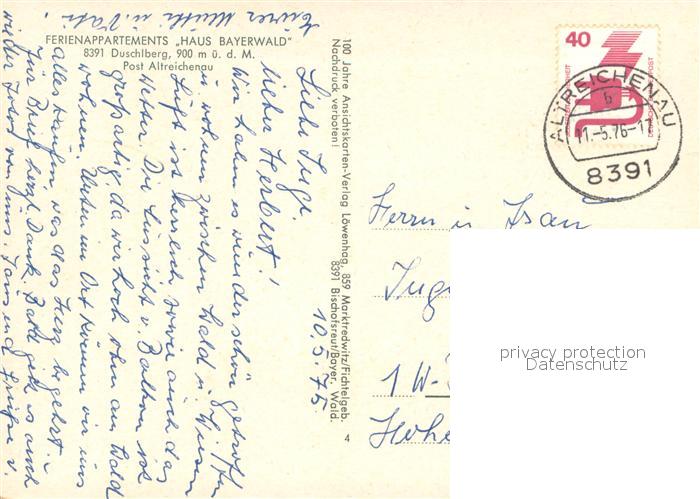 FERIENAPPARTEMENTS „HAUS BAYERWALD"
8391 Duschlberg, 900 m ü. d. M.
Post Altreichenau
100 Jahre Ansichtskarten-Verlag Löwenhag, 859 Marktredwitz/Fichtelgeb.
Nachdruck verboten!
8391 Bischofsreut/Bayer. Wald.
4
10.5.75
Liebe Inge
lieber Herbert!
Wir haben es wunderschön getroffen
u wohnen zwischen Wald u. Wiesen
Luft ist herrlich sowie auch das
Wetter. Die Aussicht v. Balkon ist
großartig, da wir hoch oben am Wald
wohnen. Unten im Ort können wir uns
alles kaufen, was das Herz begehrt.
Für Brief herzl. Dank. Bald geht es auch
wieder
von uns.
und Grüße v.
Eurer Mutti u. Vati.
40
DEUTSCHE BUNDESPOST
ALTREICHENAU
b
11.-5.76-17
8391
Herrn u. Frau
Inge
1 W-
Hohe
privacy protection
Datenschutz